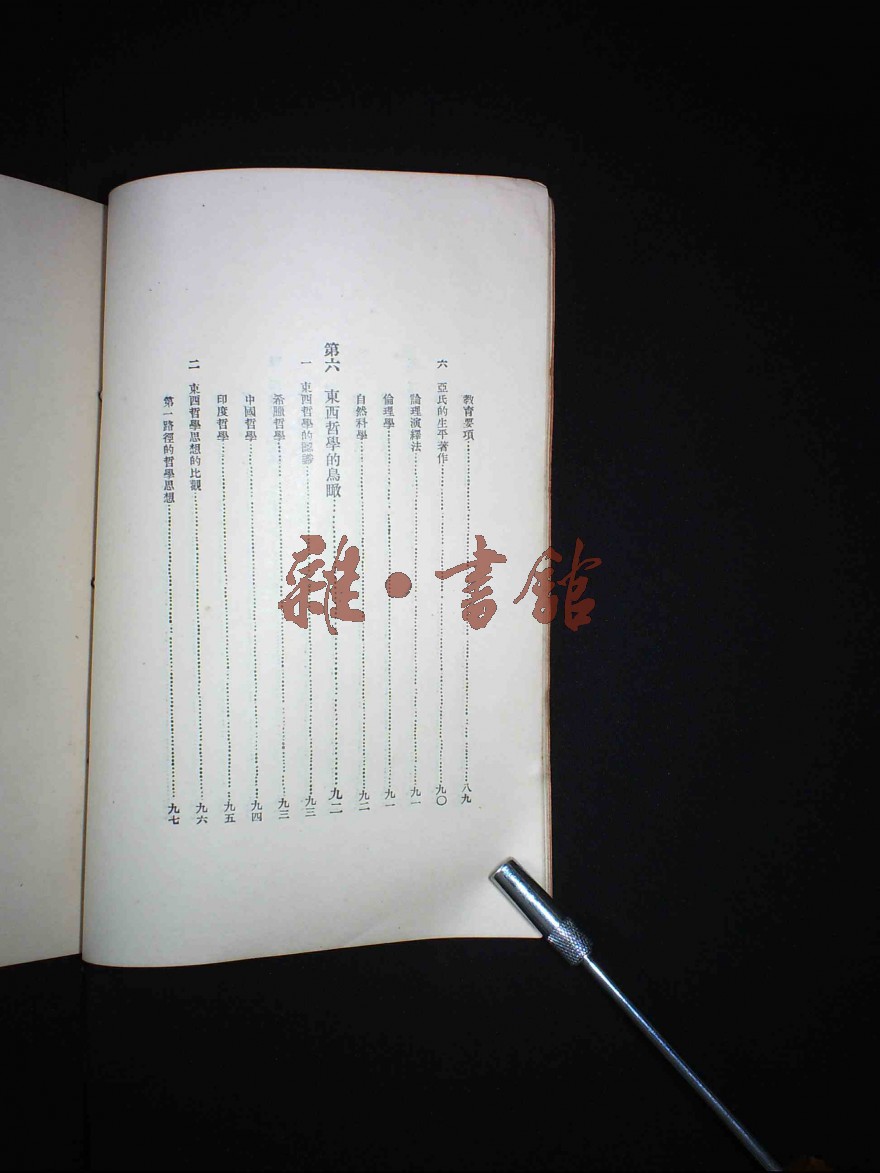 教育要項……八九
六 亞氏的生平著作……九〇
論理演繹法……九一
倫理學……九一
自然科學……九二
第六 東西哲學的鳥瞰……九二
一 東西哲學的……九三
希臘哲學……九三
中國哲學……九四
印度哲學……九五
二 東西哲學思想的比觀……九六
第一路徑的哲學思想……九七
雜·書館